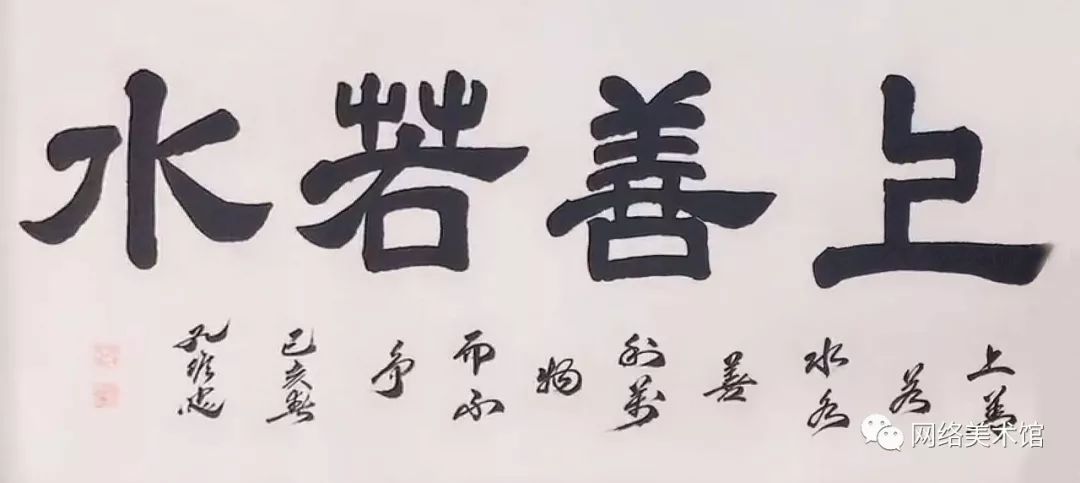 上善若水
上善
若
水水
善
利萬
物
而不
争
己亥秋
网络美术馆